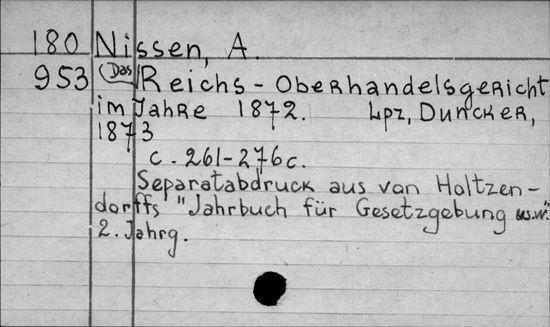 180 Nissen, A.
953 (Das) Reichs-Oberhandelsgericht
im Jahre 1872. Lpz, Duncker,
1873
c. 261-276 c.
Separatabdruck aus von Holtzen-
dorffs "Jahrbuch für Gesetzgebung us.w."
2. Jahrg.